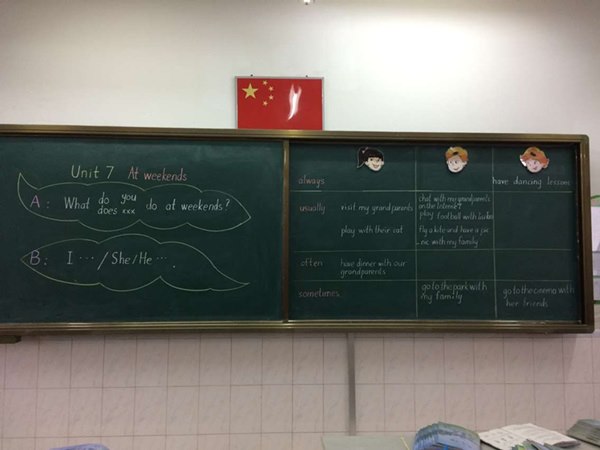 Unit 7 At weekends
A: What do you
does xxx do at weekends?
B: I ··· / She/He ··· .
always have dancing lessons
usually visit my grandparents chat with my grandparents
on the Internet
play football with
play with their cat fly a kite and have a pic
-nic with my family
often have dinner with our
grandparents
sometimes go to the park with go to the cinema with
my family her friends